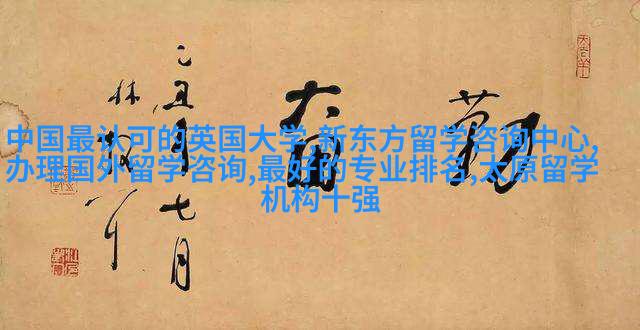 中国最认可的英国大学,新东方留学咨询中心,
办理国外留学咨询,最好的专业排名,太原留学
机构十强
勤奋
乙丑年七月
林散